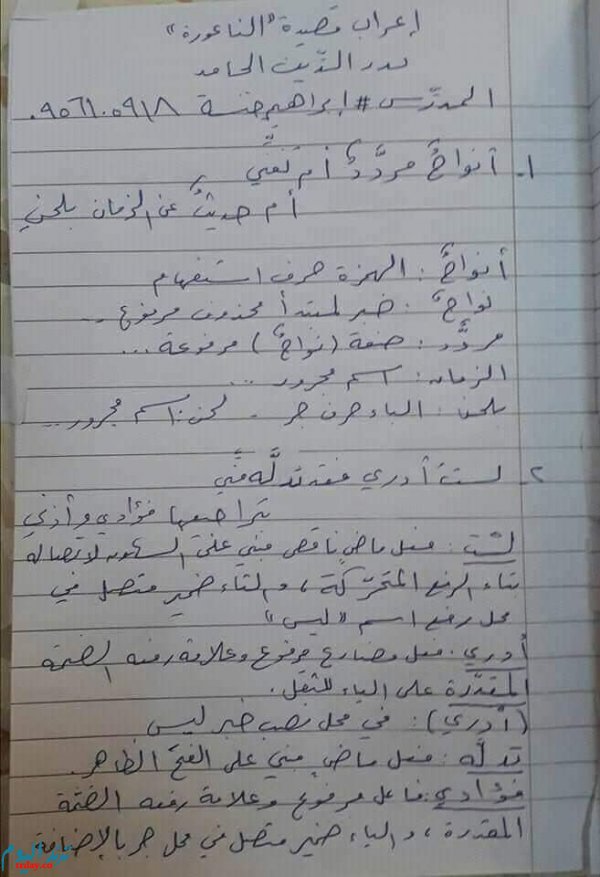 إعراب قصيدة "الناعورة"
بدر الدّين الحامد
المدرّس # إبراهيم حنسة ٠٩٥٦١٠٥٩١٨
١- أنواحٌ مردَّدٌ أم تغنّي
أم حديثٌ عن الزمان بلحنِ
أنواحٌ : الهمزة حرف استفهام
نواحٌ : خبر لمبتدأ محذوف مرفوع ..
مردَّد : صفة (نواحٌ) مرفوعة ...
الزمان : اسم مجرور ...
بلحن : الباء حرف جر . لحن : اسم مجرور ...
٢- لستُ أدري فقد تدلَّه منّي
بتراجيعها فؤادي وأذني
لستُ : فعل ماضٍ ناقص مبني على السكون لاتصاله
بتاء الرفع المتحرّكة ، والتاء ضمير متصل في
محل رفع اسم "ليس"
أدري : فعل مضارع مرفوع وعلامة رفعه الضمة
المقدّرة على الياء للثقل .
(أدري) : في محل نصب خبر ليس
تدلّه : فعل ماضٍ مبني على الفتح الظاهر .
فؤادي : فاعل مرفوع وعلامة رفعه الضمّة
المقدرة ، والياء ضمير متصل في محل جر بالإضافة